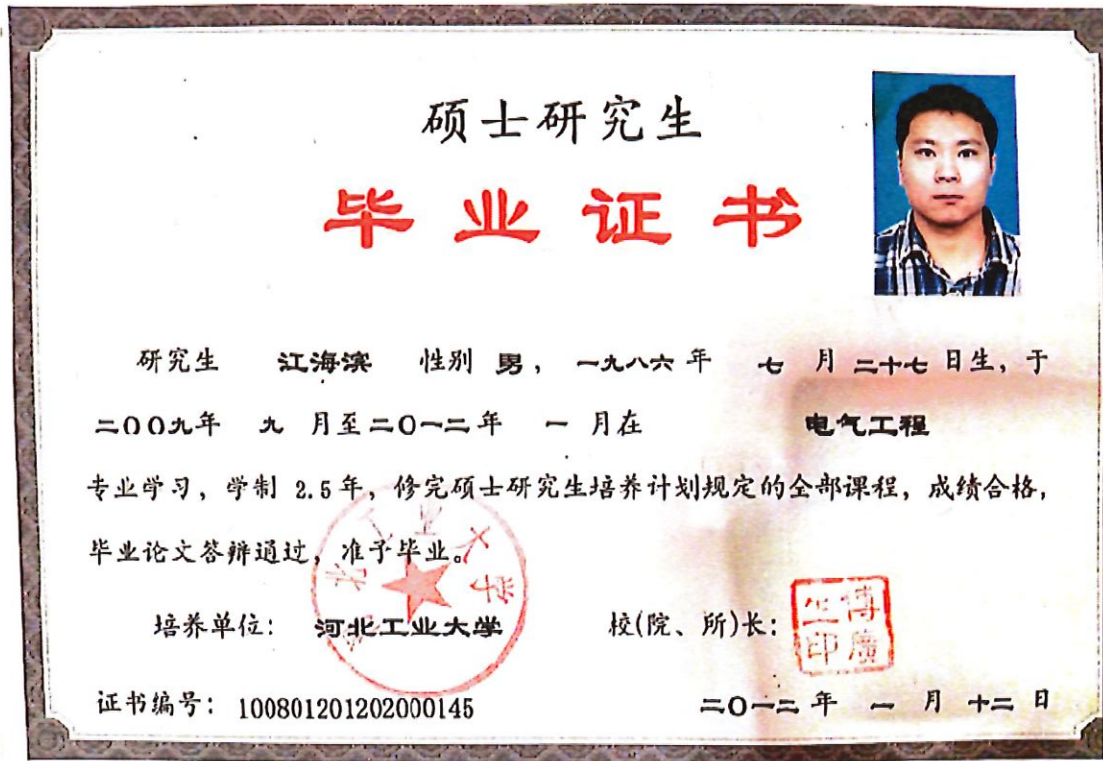 硕士研究生
毕业证书
研究生 江海滨 性别 男， 一九八六 年 七 月 二十七 日生，于
二〇〇九年 九 月至二〇一二年 一 月在 电气工程
专业学习，学制 2.5 年，修完硕士研究生培养计划规定的全部课程，成绩合格，
毕业论文答辩通过，准予毕业。
河北工业大学
培养单位： 河北工业大学 校(院、所)长：
傅广生印
证书编号：100801201202000145 二〇一二 年 一 月 十二 日